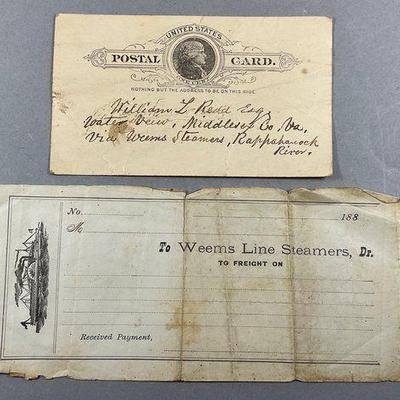 UNITED STATES
POSTAL CARD.
ONE CENT
NOTHING BUT THE ADDRESS TO BE ON THIS SIDE
William L Redd Esq.
Water View, Middlesex Co, Va,
Via Weems Steamers, Rappahanock
River.
No. 188
M
To Weems Line Steamers, Dr.
TO FREIGHT ON
Received Payment,